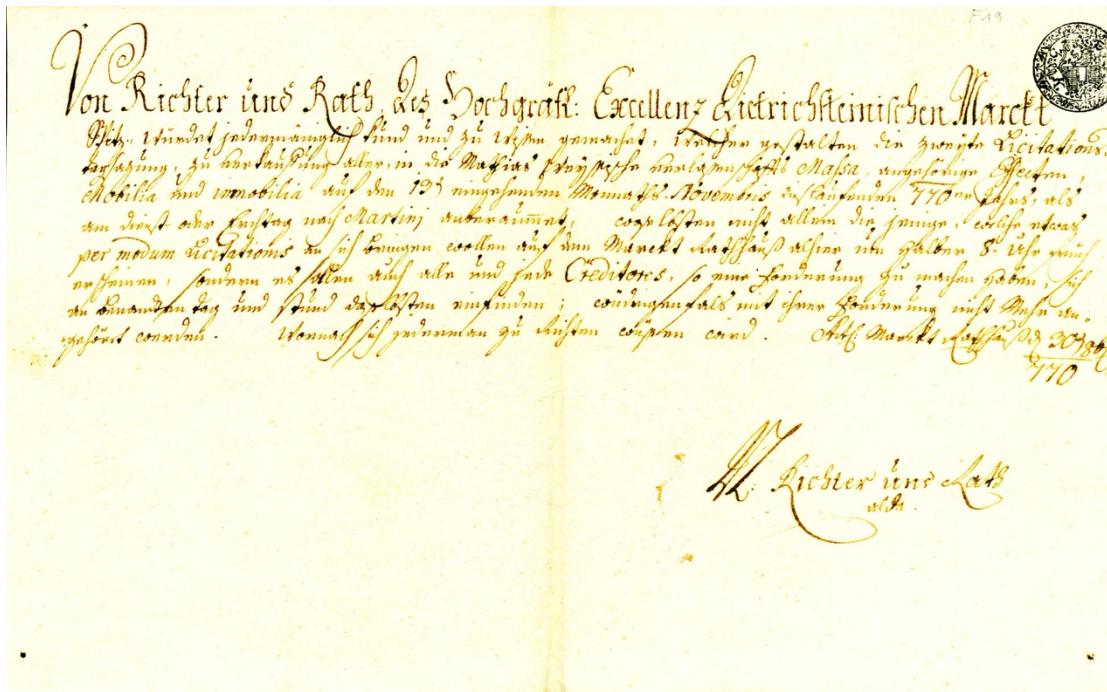 F19
Von Richter und Rath des Hochgräfl: Excellenz Dietrichsteinischen Marckt
Spitz, würdet jedermäniglich kund und zu wißen gemachet, welcher gestalten die zweyte Licitations-
tagsazung, zu verkaufung aller, in die Mathias Freyßische verlaßenschaffts Massa, angehörige Effecten,
Mobilia und immobilia auf den 13t eingehenden Monnaths Novembris dißlaufenden 770er Jahrs, als
am dienst oder Erchtag nach Martinj anberaummet, nicht allein die jenige, welche etwas
per modum Licitationis an sich bringen wollen auf dem Marckt Rathhauß alhier um halber 8 Uhr fruh
erscheinen, sondern es sollen auch alle und jede Creditores, so eine forderung zu machen haben, sich
an benandten tag und stund daselbsten einfinden; widrigenfals mit ihrer forderung nicht mehr an-
gehört werden. Wornach sich jederman zu richten wißen wird. Marckt Rathhauß d 30t 8b
770
N: Richter und Rath
alda.